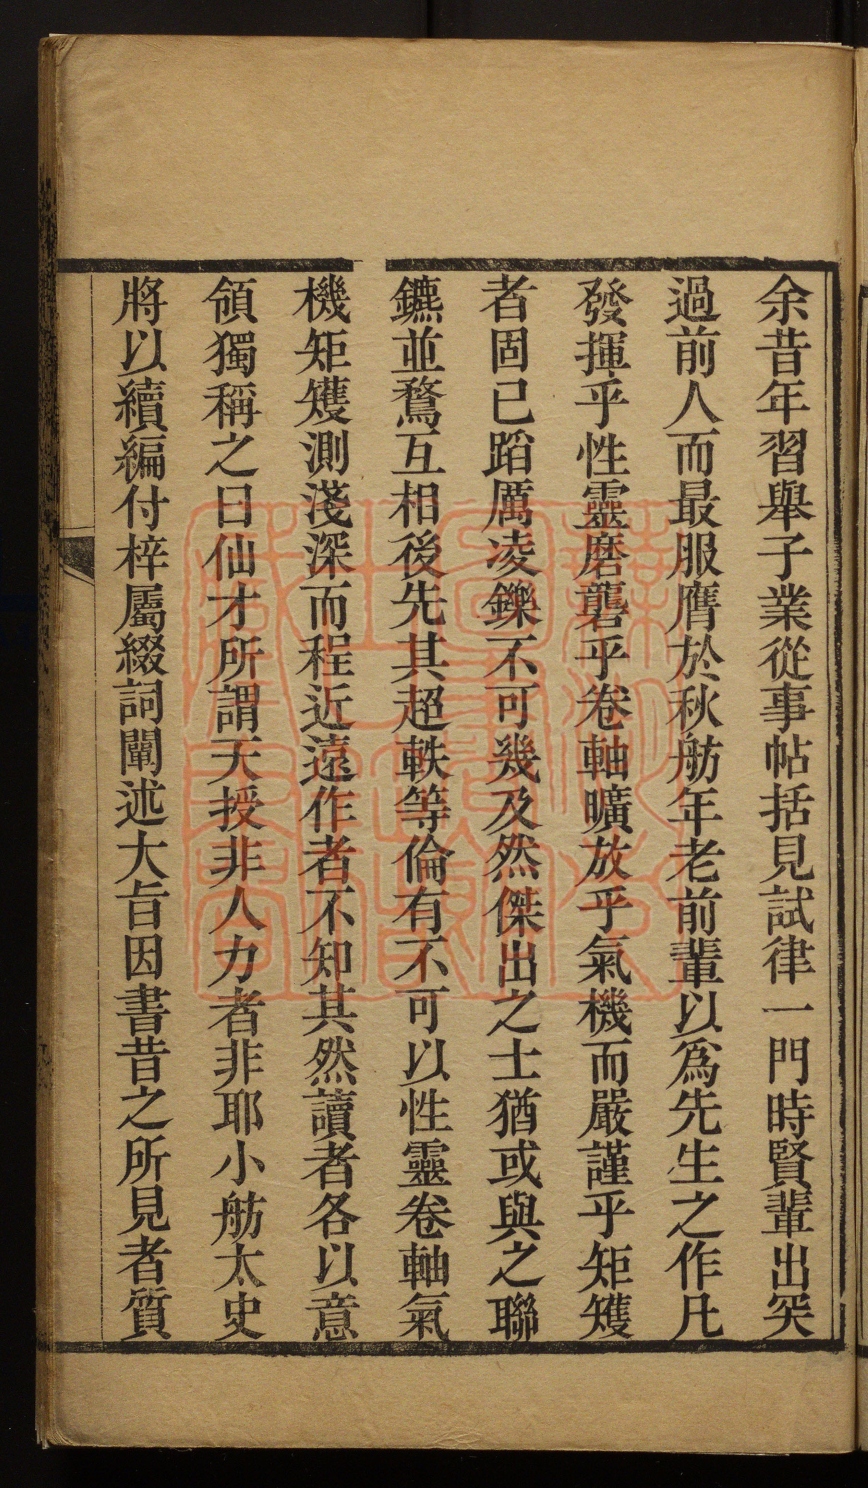 余昔年習舉子業從事帖括見試律一門時賢輩出突
過前人而最服膺於秋舫年老前輩以爲先生之作凡
發揮乎性靈磨礱乎卷軸曠放乎氣機而嚴謹乎矩矱
者固已蹈厲凌鑠不可幾及然傑出之士猶或與之聯
鑣並騖互相後先其超軼等倫有不可以性靈卷軸氣
機矩矱測淺深而程近遠作者不知其然讀者各以意
領獨稱之曰仙才所謂天授非人力者非耶小舫太史
將以續編付梓屬綴詞闡述大旨因書昔之所見者質